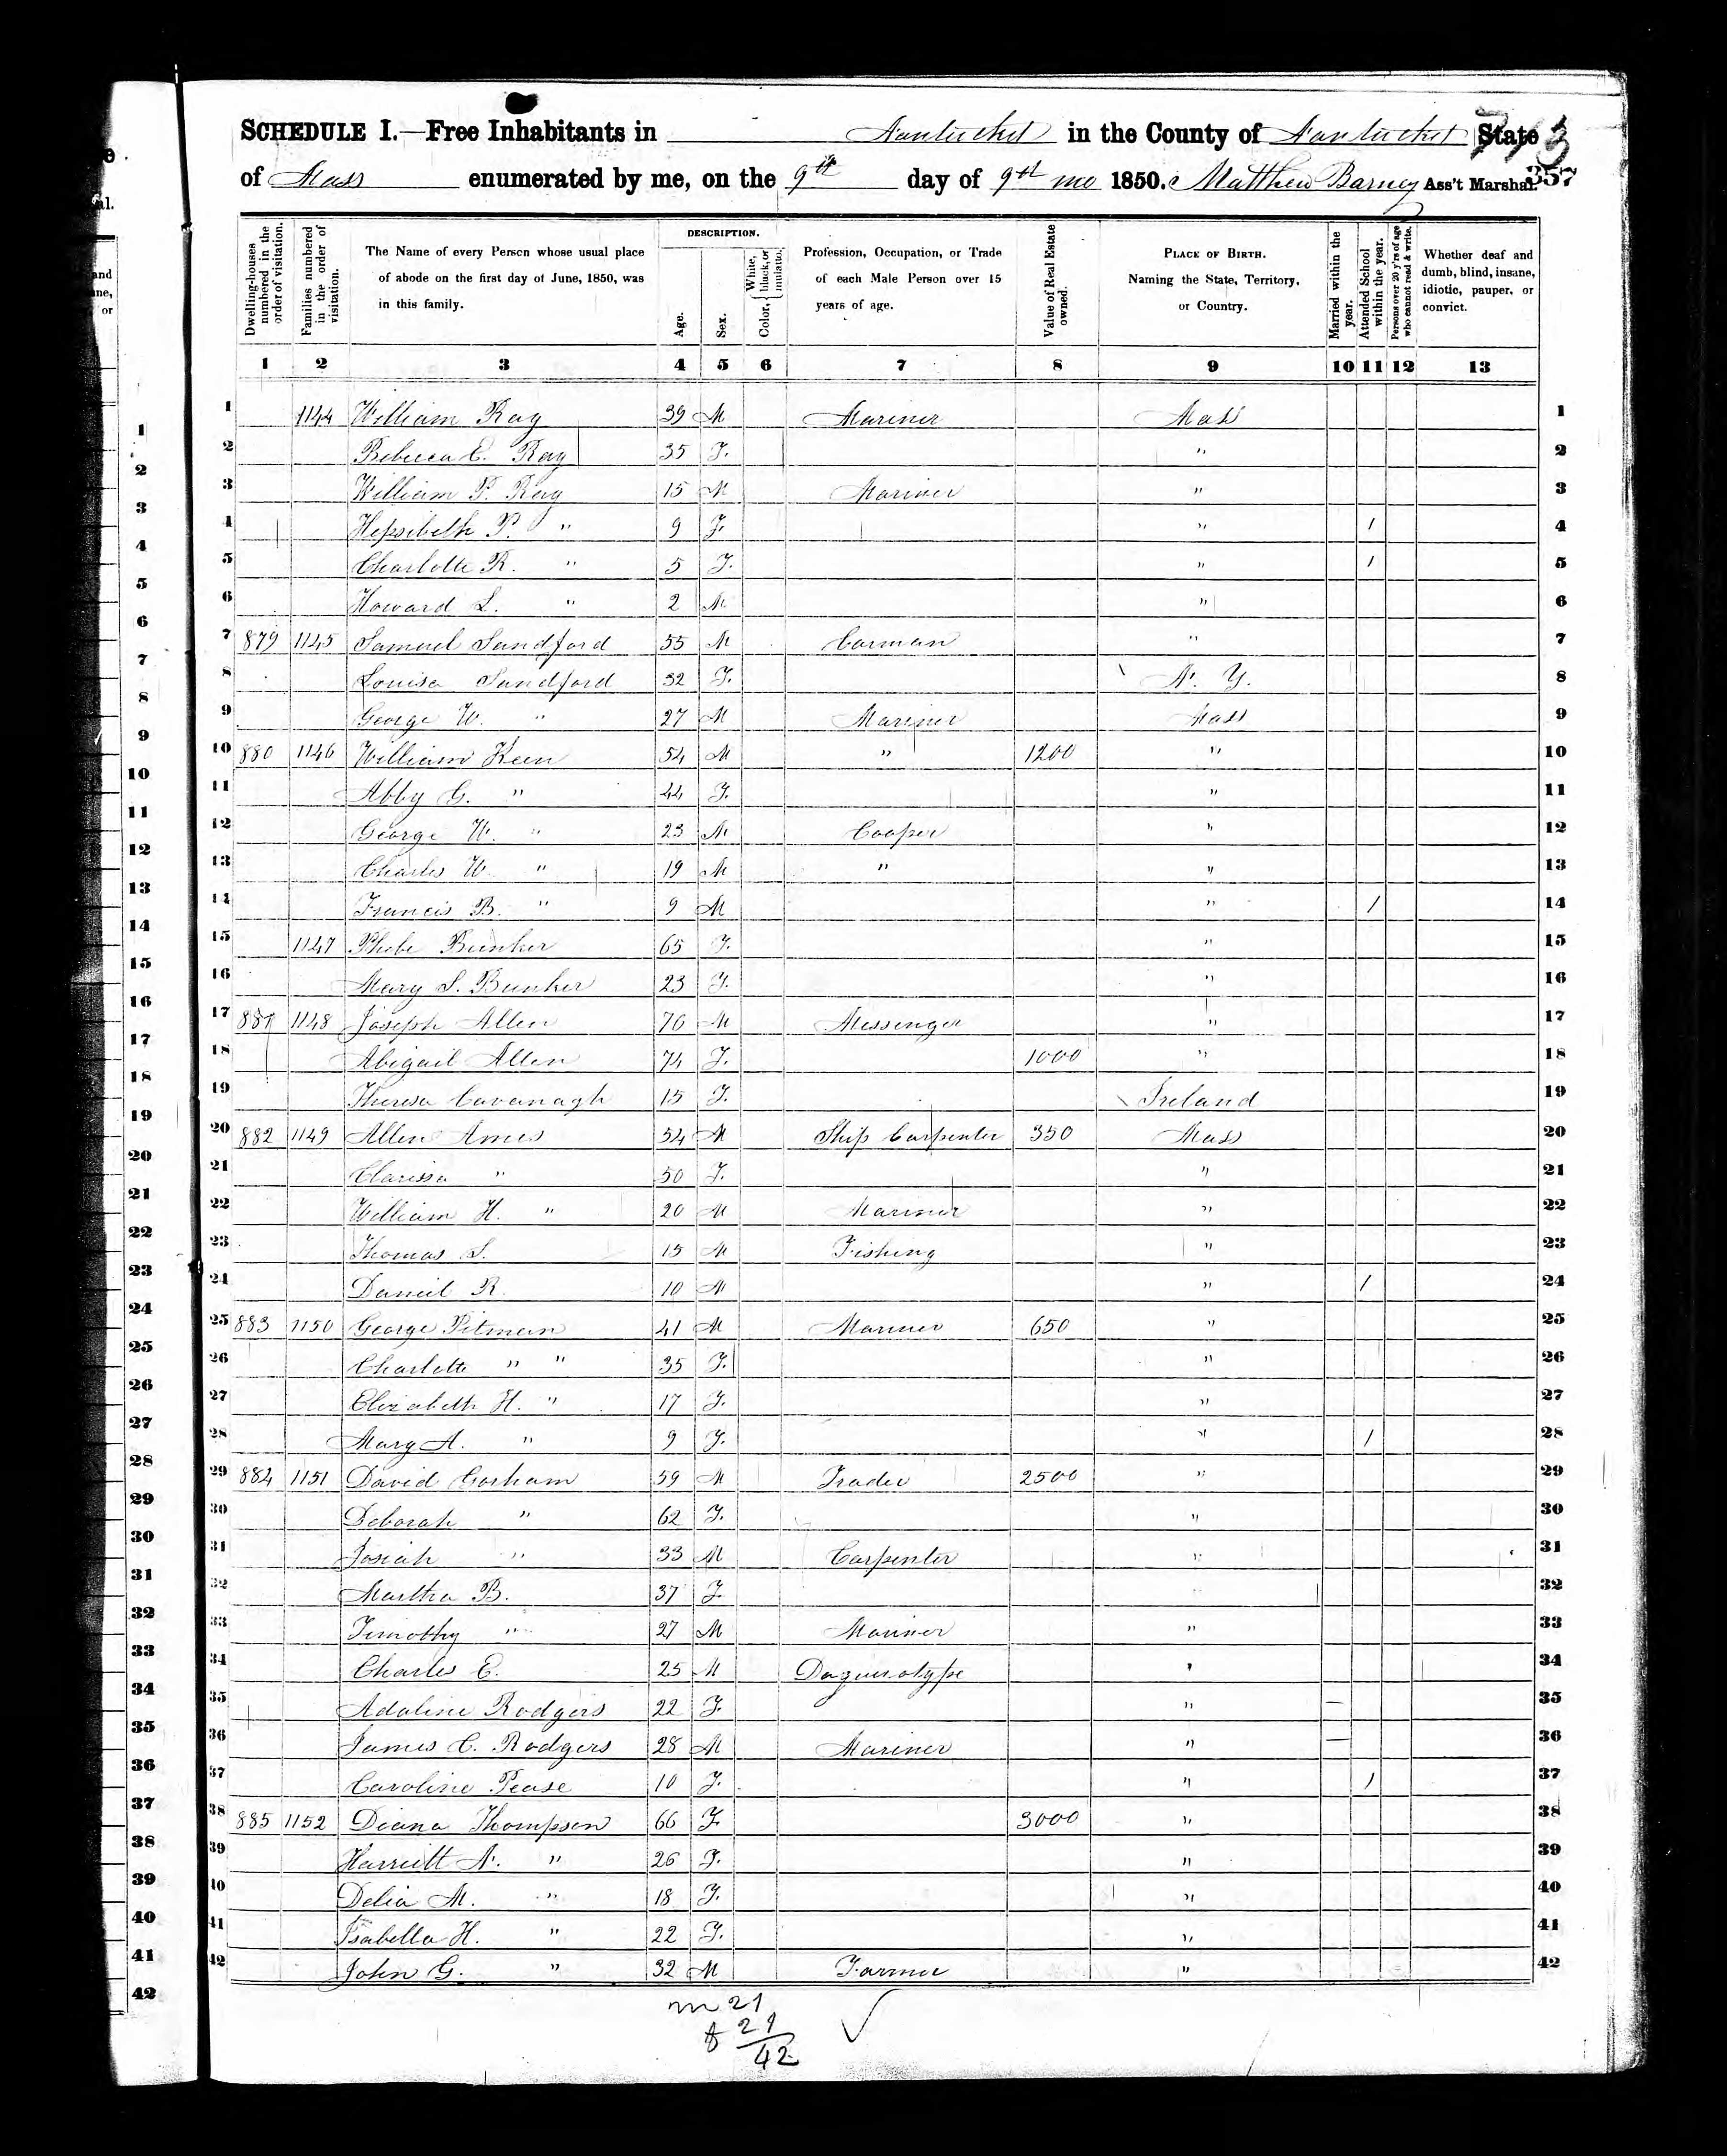 SCHEDULE I.—Free Inhabitants in Nantucket in the County of Nantucket State
of Mass enumerated by me, on the 9th day of 9th mo 1850. Matthew Barney Ass't Marshal. 357
Dwelling-houses numbered in the order of visitation.
Families numbered in the order of visitation.
The Name of every Person whose usual place of abode on the first day of June, 1850, was in this family.
DESCRIPTION.
Age.
Sex.
Color, White, black, or mulatto.
Profession, Occupation, or Trade of each Male Person over 15 years of age.
Value of Real Estate owned.
PLACE OF BIRTH. Naming the State, Territory, or Country.
Married within the year.
Attended School within the year.
Persons over 20 y'rs of age who cannot read & write.
Whether deaf and dumb, blind, insane, idiotic, pauper, or convict.
1 2 3 4 5 6 7 8 9 10 11 12 13
1 1144 William Ray 39 M Mariner Mass 1
2 Rebecca C. Ray 35 F. " 2
3 William P. Ray 15 M Mariner " 3
4 Hepsibeth P. " 9 F. " 1 4
5 Charlotte R. " 5 F. " 1 5
6 Howard L. " 2 M " 6
7 879 1145 Samuel Sandford 55 M Carman " 7
8 Louisa Sandford 32 F. N. Y. 8
9 George W. " 27 M Mariner Mass 9
10 880 1146 William Keen 54 M " 1200 " 10
11 Abby G. " 44 F. " 11
12 George W. " 23 M Cooper " 12
13 Charles W. " 19 M " " 13
14 Francis B. " 9 M " 1 14
15 1147 Phebe Bunker 65 F. " 15
16 Mary S. Bunker 23 F. " 16
17 881 1148 Joseph Allen 76 M Messenger " 17
18 Abigail Allen 74 F. 1000 " 18
19 Theresa Cavanagh 15 F. Ireland 19
20 882 1149 Allen Ames 54 M Ship Carpenter 350 Mass 20
21 Clarissa " 50 F. " 21
22 William H. " 20 M Mariner " 22
23 Thomas S. 15 M Fishing " 23
24 Daniel R. 10 M " 1 24
25 883 1150 George Pitman 41 M Mariner 650 " 25
26 Charlotte " " 35 F. " 26
27 Elizabeth H. " 17 F. " 27
28 Mary A. " 9 F. " 1 28
29 884 1151 David Gorham 59 M Trader 2500 " 29
30 Deborah " 62 F. " 30
31 Josiah " 33 M Carpenter " 31
32 Martha B. 37 F. " 32
33 Timothy " 27 M Mariner " 33
34 Charles E. 25 M Daguerotype " 34
35 Adaline Rodgers 22 F. " — 35
36 James C. Rodgers 28 M Mariner " — 36
37 Caroline Pease 10 F. " 1 37
38 885 1152 Diana Thompson 66 F. 3000 " 38
39 Harriett N. " 26 F. " 39
40 Delia M. " 18 F. " 40
41 Isabella H. " 22 F. " 41
42 John G. " 32 M Farmer " 42
m 21
f 21
42